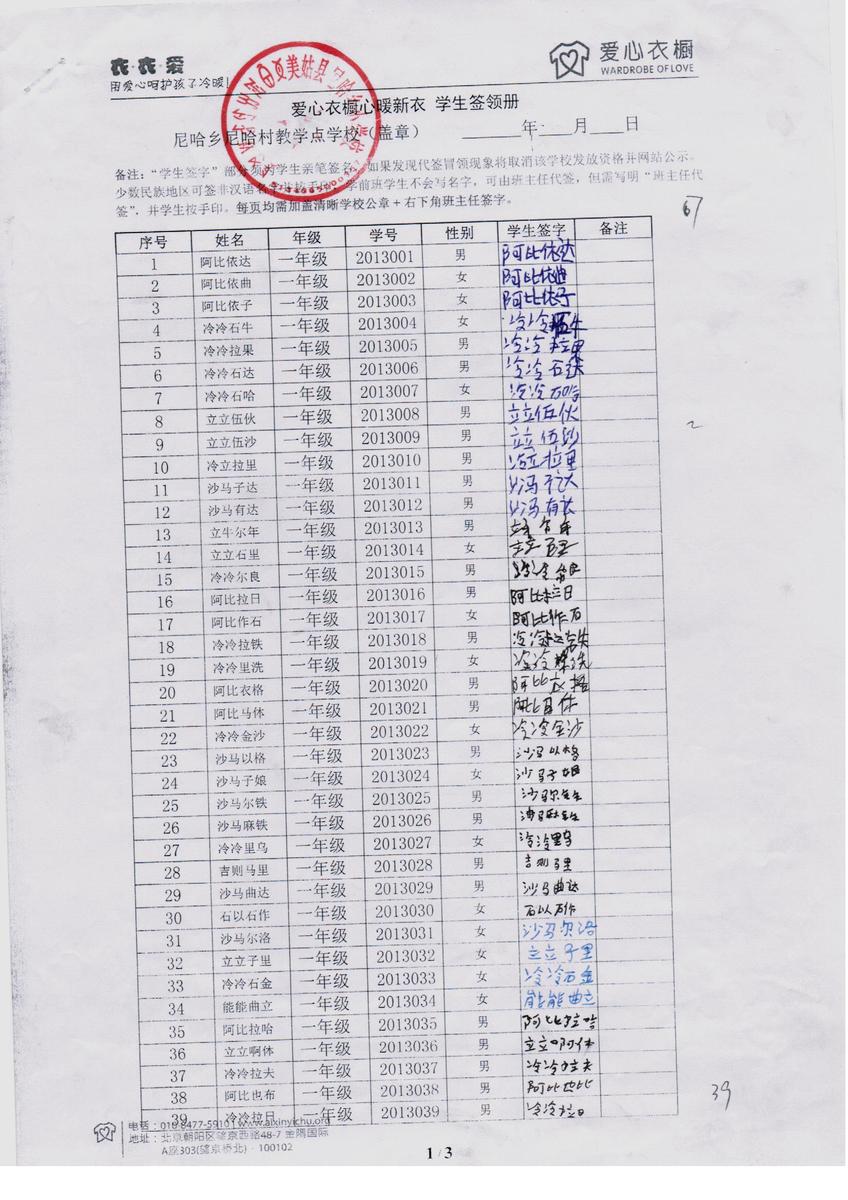 衣·衣·爱
用爱心呵护孩子冷暖!
爱心衣橱
WARDROBE OF LOVE
爱心衣橱心暖新衣 学生签领册
尼哈乡尼哈村教学点学校(盖章) ______年___月___日
备注:“学生签字”部分须为学生亲笔签名,如果发现代签冒领现象将取消该学校发放资格并网站公示。
少数民族地区可签非汉语名字并按手印。学前班学生不会写名字,可由班主任代签,但需写明“班主任代
签”,并学生按手印。每页均需加盖清晰学校公章+右下角班主任签字。
67
序号 姓名 年级 学号 性别 学生签字 备注
1 阿比依达 一年级 2013001 男 阿比依达
2 阿比依曲 一年级 2013002 女 阿比依曲
3 阿比依子 一年级 2013003 女 阿比依子
4 冷冷石牛 一年级 2013004 女 冷冷石牛
5 冷冷拉果 一年级 2013005 男 冷冷拉果
6 冷冷石达 一年级 2013006 男 冷冷石达
7 冷冷石哈 一年级 2013007 女 冷冷石哈
8 立立伍伙 一年级 2013008 男 立立伍伙
9 立立伍沙 一年级 2013009 男 立立伍沙
10 冷立拉里 一年级 2013010 男 冷立拉里
11 沙马子达 一年级 2013011 男 沙马子达
12 沙马有达 一年级 2013012 男 沙马有达
13 立牛尔年 一年级 2013013 男
14 立立石里 一年级 2013014 女 立立石里
15 冷冷尔良 一年级 2013015 男
16 阿比拉日 一年级 2013016 男 阿比拉日
17 阿比作石 一年级 2013017 女 阿比作石
18 冷冷拉铁 一年级 2013018 男 冷冷拉铁
19 冷冷里洗 一年级 2013019 女
20 阿比衣格 一年级 2013020 男 阿比衣格
21 阿比马休 一年级 2013021 男
22 冷冷金沙 一年级 2013022 女 冷冷金沙
23 沙马以格 一年级 2013023 男 沙马以格
24 沙马子娘 一年级 2013024 女 沙马子娘
25 沙马尔铁 一年级 2013025 男
26 沙马麻铁 一年级 2013026 男
27 冷冷里乌 一年级 2013027 女 冷冷里乌
28 吉则马里 一年级 2013028 男 吉则马里
29 沙马曲达 一年级 2013029 男 沙马曲达
30 石以石作 一年级 2013030 女 石以石作
31 沙马尔洛 一年级 2013031 女 沙马尔洛
32 立立子里 一年级 2013032 女 立立子里
33 冷冷石金 一年级 2013033 女 冷冷石金
34 能能曲立 一年级 2013034 女 能能曲立
35 阿比拉哈 一年级 2013035 男 阿比拉哈
36 立立啊休 一年级 2013036 男 立立啊休
37 冷冷拉夫 一年级 2013037 男 冷冷拉夫
38 阿比也布 一年级 2013038 男
39 冷冷拉日 一年级 2013039 男 冷冷拉日
39
电话:010-8477-5910 | www.aixinyichu.org
地址:北京朝阳区望京西路48-7 金隅国际
A座303(望京桥北)· 100102
1 / 3